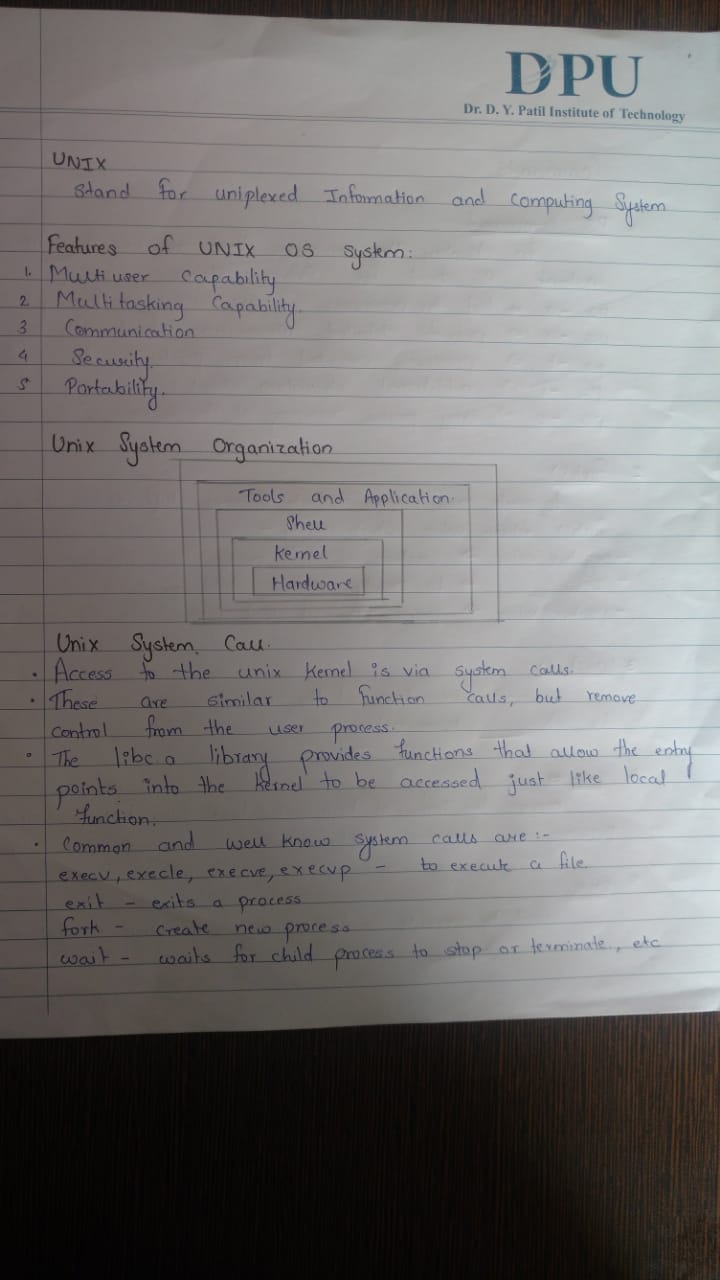 DPU
Dr. D. Y. Patil Institute of Technology
UNIX
Stand for uniplexed Information and Computing System
Features of UNIX OS System:
1. Multi user Capability
2 Multi tasking Capability.
3 Communication
4 Security.
5 Portability.
Unix System Organization
Tools and Application.
Shell
Kernel
Hardware
Unix System Call.
• Access to the unix Kernel is via system calls.
• These are similar to function calls, but remove
control from the user process.
• The libc.a library provides functions that allow the entry
points into the kernel to be accessed just like local
function.
• Common and well know system calls are :-
execv, execle, execve, execvp - to execute a file
exit - exits a process
fork - create new process
wait - waits for child process to stop or terminate., etc